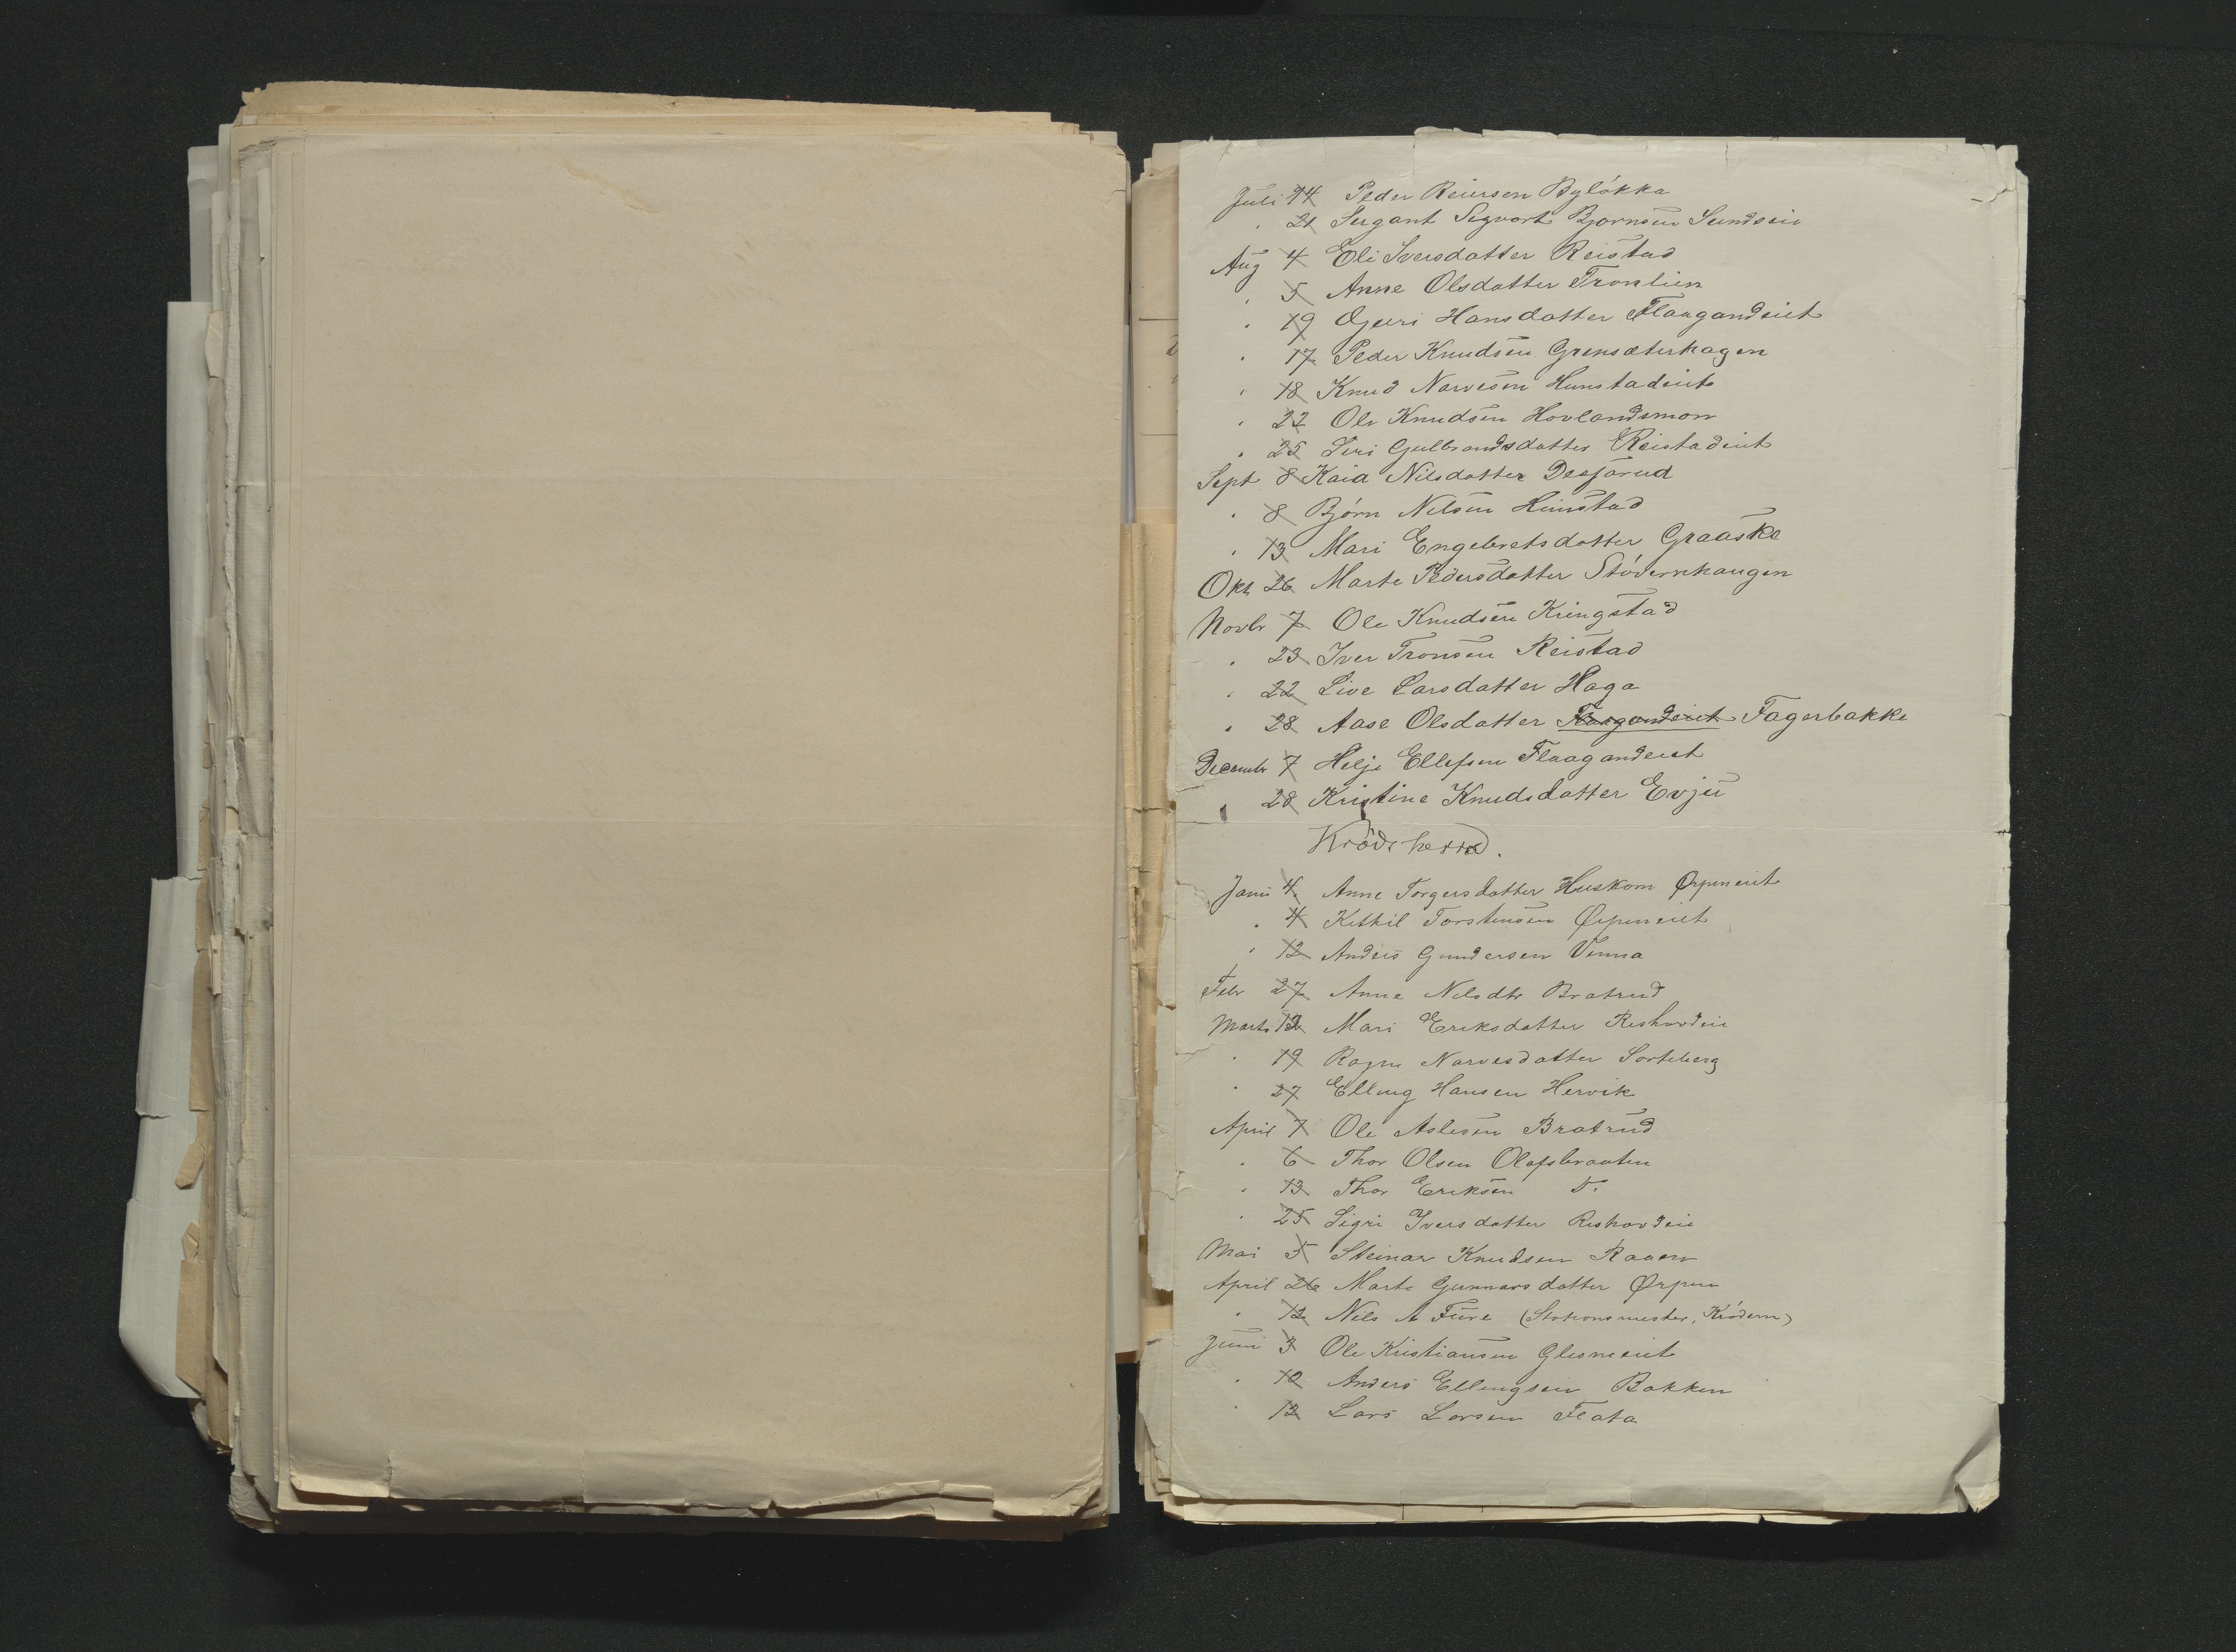 Juli 14 Peder Reiersen Byløkka
" 21 Sergant Segvart Bjørnsen Sundseie
Aug 4 Eli Iversdatter Reistad
" 5 Anne Olsdatter Tronlien
" 19 Gjuri Hansdatter Flaagandeiet
" 17 Peder Knudsen Grensæterhagen
" 18 Knud Narvesen Hunstadeiet
" 22 Ole Knudsen Hovlandsmon
" 25 Siri Gulbrandsdatter Reistadeiet
Sept 8 Kaia Nilsdatter
" 8 Bjørn Nilsen Hunstad
" 13 Mari Engebretsdatter Graaske
Okt 26 Marte Pedersdatter Støvernhaugen
Novbr 7 Ole Knudsen Kringstad
" 23 Iver Tronsen Reistad
" 22 Live Larsdatter Haga
" 28 Aase Olsdatter Flaagandeiet Fagerbakke
Decembr 7 Helje Ellefsen Flaagandeiet
" 28 Kristine Knudsdatter Evju
Krödsherred.
Janu 4 Anne Torgersdatter Huskom Ørpeneiet
" 4 Kethil Torstensen Ørpeneiet
" 12 Anders Gundersen Vinna
Febr 27 Anne Nilsdtr Bratrud
Marts 12 Mari Eriksdatter Reshovdeie
" 19 Ragne Narvesdatter Sorteberg
" 27 Elling Hansen Hervik
April 7 Ole Aslesen Bratrud
" 6 Thor Olsen Olafsbraaten
" 13 Thor Eriksen D:
" 25 Sigri Iversdatter Reshovdeie
Mai 5 Steinar Knudsen Raaen
April 26 Marte Gunnarsdatter Ørpen
" 12 Nils A Fure (Stationsmester, Krödern)
Juni 3 Ole Kristiansen Glesneeiet
" 10 Anders Ellingsen Bakken
" 13 Lars Larsen Flata